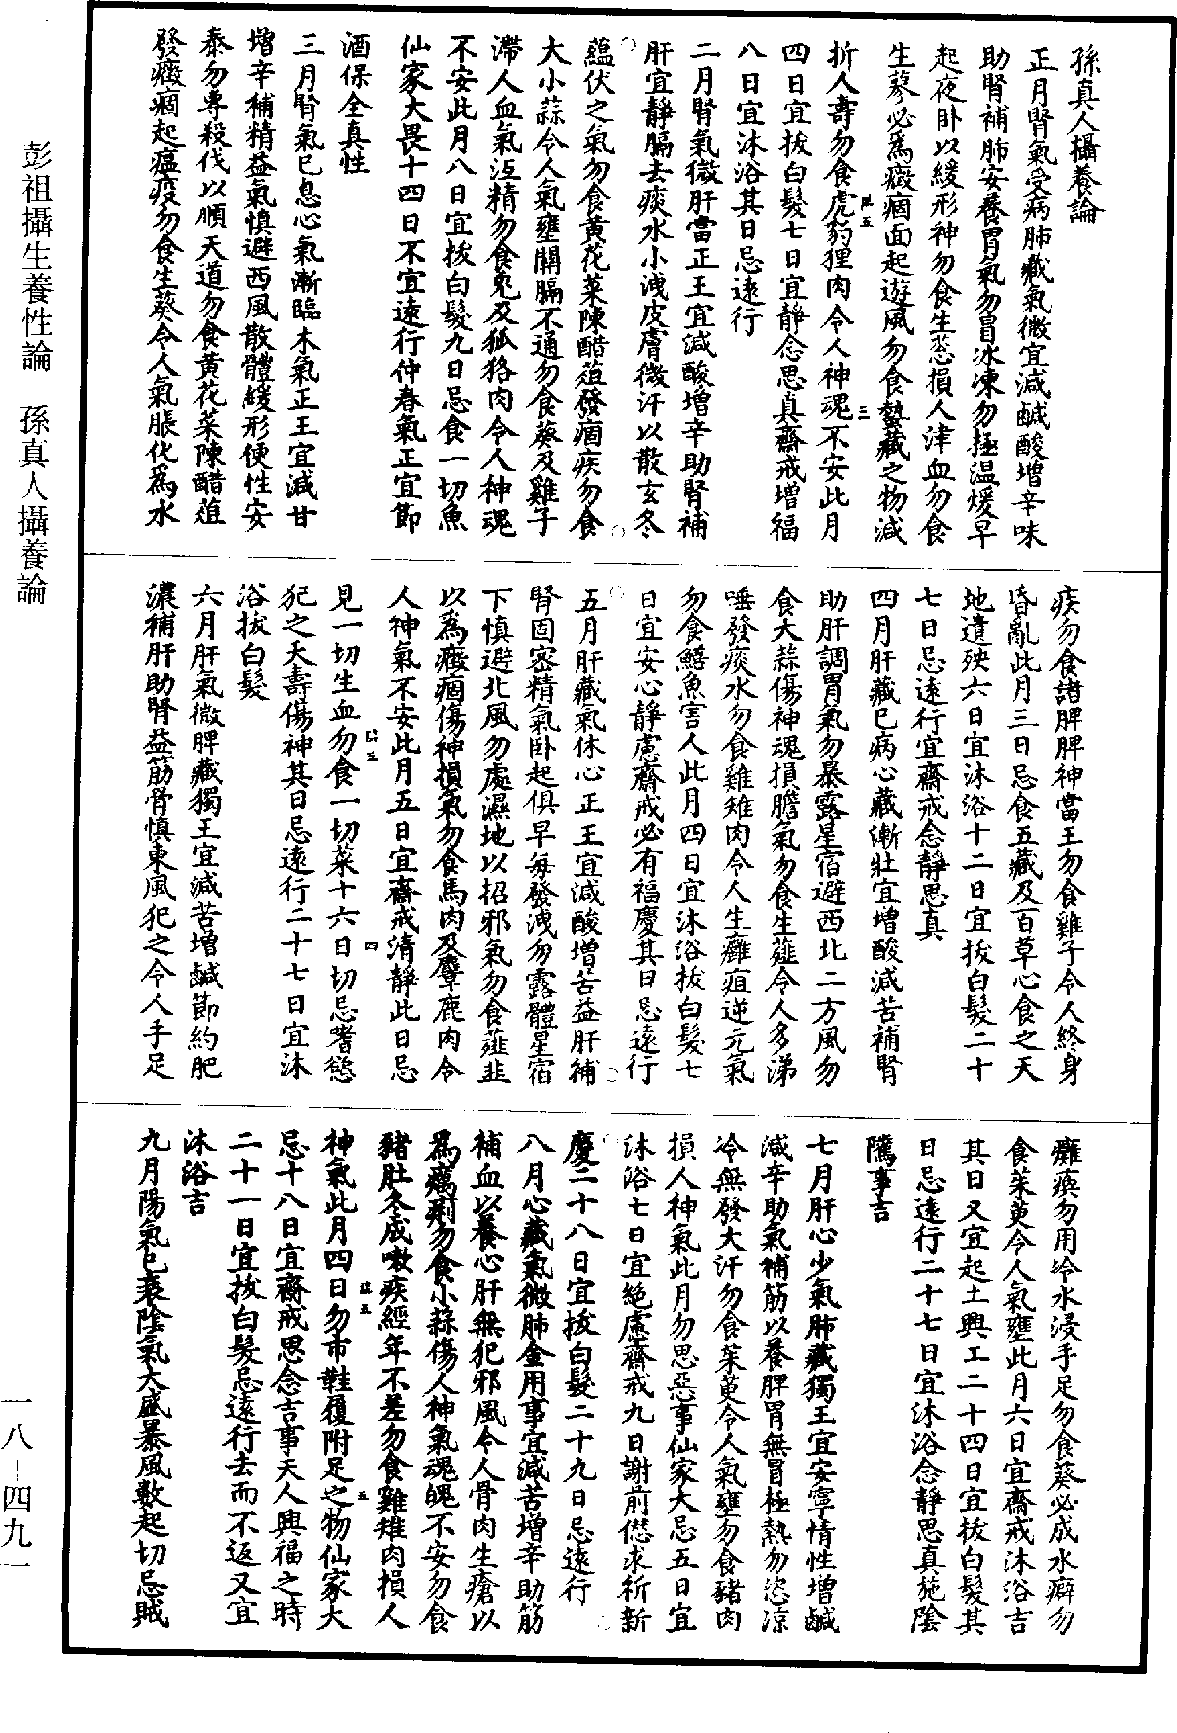 孫真人攝養論
正月腎氣受病肺藏氣微宜減鹹酸增辛味
助腎補肺安養胃氣勿冒冰凍勿極温煖早
起夜卧以緩形神勿食生葱損人津血勿食
生蓼必為癥痼面起遊風勿食蟄藏之物減
折人壽勿食虎豹狸肉令人神魂不安此月
四日宜拔白髮七日宜靜念思真齋戒增福
八日宜沐浴其日忌遠行
二月腎氣微肝當正王宜減酸增辛助腎補
肝宜靜膈去痰水小洩皮膚微汗以散玄冬
蘊伏之氣勿食黄花菜陳醋葅發痼疾勿食
大小蒜令人氣壅關膈不通勿食葵及雞子
滯人血氣冱精勿食兔及狐狢肉令人神魂
不安此月八日宜拔白髮九日忌食一切魚
仙家大畏十四日不宜遠行仲春氣正宜節
酒保全真性
三月腎氣已息心氣漸臨木氣正王宜減甘
增辛補精益氣慎避西風散體緩形便性安
泰勿專殺伐以順天道勿食黄花菜陳醋葅
發癥痼起瘟疫勿食生葵令人氣脹化為水
疾勿食諸脾脾神當王勿食雞子令人終身
昏亂此月三日忌食五藏及百草心食之天
地遺殃六日宜沐浴十二日宜拔白髮二十
七日忌遠行宜齋戒念靜思真
四月肝藏已病心藏漸壯宜增酸減苦補腎
助肝調胃氣勿暴露星宿避西北二方風勿
食大蒜傷神魂損膽氣勿食生薤令人多涕
唾發痰水勿食雞雉肉令人生癰疽逆元氣
勿食鱔魚害人此月四日宜沐浴拔白髮七
日宜安心靜慮齋戒必有福慶其日忌遠行
五月肝藏氣休心正王宜減酸增苦益肝補
腎固密精氣卧起俱早每發洩勿露體星宿
下慎避北風勿處濕地以招邪氣勿食薤韭
以為癥痼傷神損氣勿食馬肉及麞鹿肉令
人神氣不安此月五日宜齋戒清靜此日忌
見一切生血勿食一切菜十六日切忌嗜慾
犯之夭壽傷神其日忌遠行二十七日宜沐
浴拔白髮
六月肝氣微脾藏獨王宜減苦增鹹節約肥
濃補肝助腎益筋骨慎東風犯之令人手足
癱瘓勿用冷水浸手足勿食葵必成水癖勿
食茱萸令人氣壅此月六日宜齋戒沐浴吉
其日又宜起土興工二十四日宜拔白髮其
日忌遠行二十七日宜沐浴念靜思真施陰
隲事吉
七月肝心少氣肺藏獨王宜安寧情性增鹹
減辛助氣補筋以養脾胃無冒極熱勿恣涼
冷無發大汗勿食茱萸令人氣壅勿食豬肉
損人神氣此月勿思惡事仙家大忌五日宜
沐浴七日宜絕慮齋戒九日謝前愆求祈新
慶二十八日宜拔白髮二十九日忌遠行
八月心藏氣微肺金用事宜減苦增辛助筋
補血以養心肝無犯邪風令人骨肉生瘡以
為癘痢勿食小蒜傷人神氣魂魄不安勿食
豬肚冬成嗽疾經年不差勿食雞雉肉損人
神氣此月四日勿市鞋履附足之物仙家大
忌十八日宜齋戒思念吉事天人興福之時
二十一日宜拔白髮忌遠行去而不返又宜
沐浴吉
九月陽氣已衰陰氣大盛暴風數起切忌賊
彭祖攝生養性論　孫真人攝養論
一八－四九一